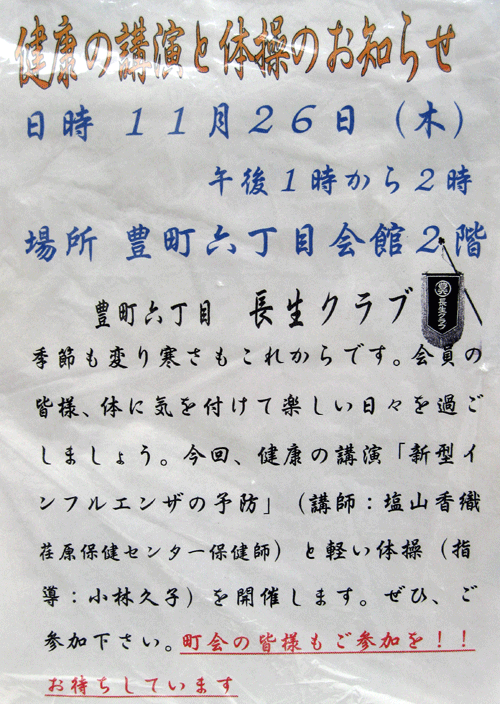 健康の講演と体操のお知らせ
日時 11月26日(木)
午後1時から2時
場所 豊町六丁目会館2階
豊町六丁目 長生クラブ
長生クラブ
季節も変り寒さもこれからです。会員の
皆様、体に気を付けて楽しい日々を過ご
しましょう。今回、健康の講演「新型イ
ンフルエンザの予防」(講師:塩山香織
荏原保健センター保健師)と軽い体操(指
導:小林久子)を開催します。ぜひ、ご
参加下さい。町会の皆様もご参加を!!
お待ちしています